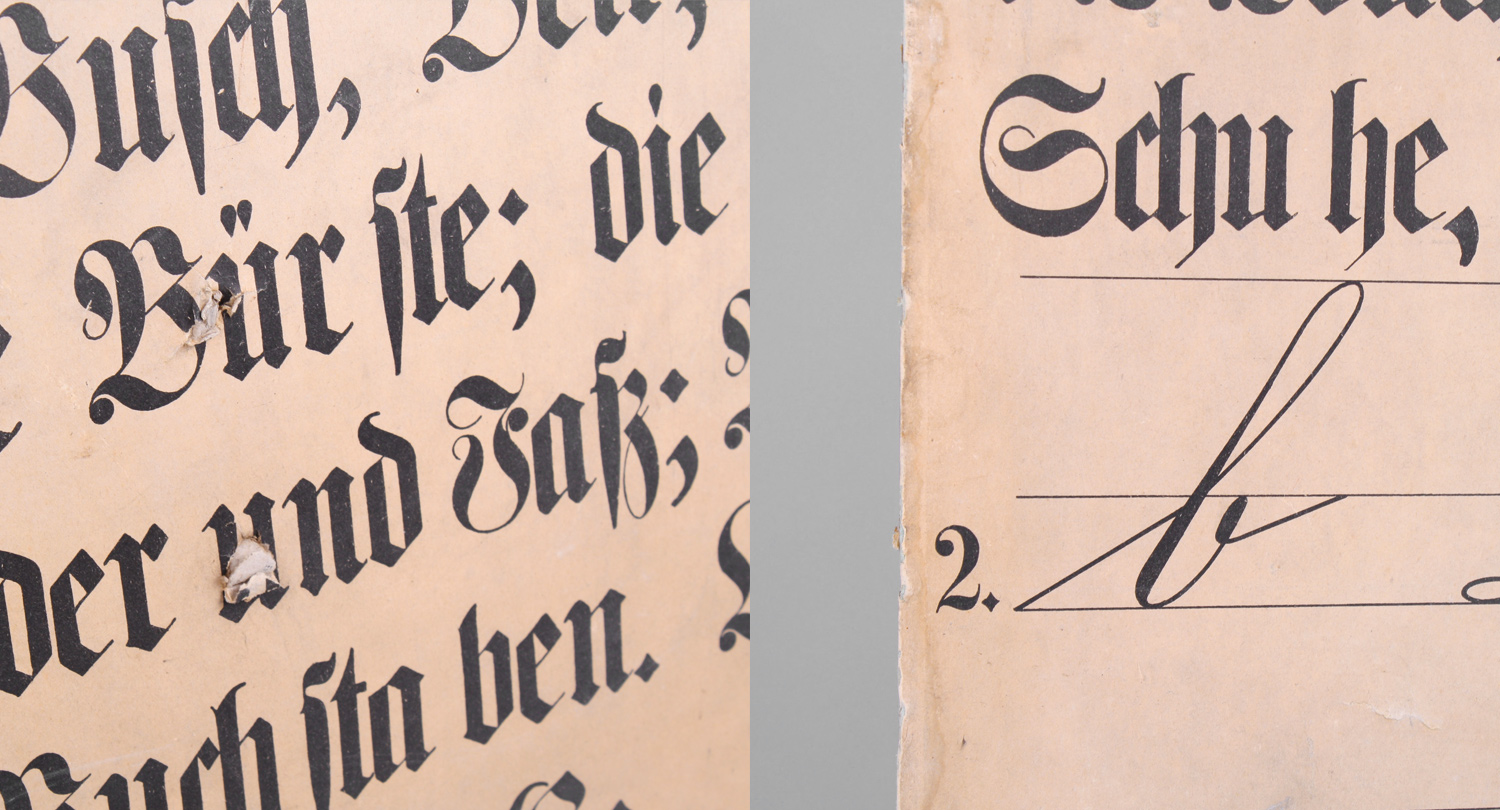 Buſch,
Bür ſte; die
der und Faß;
Buch ſta ben.
Schu he,
2. b